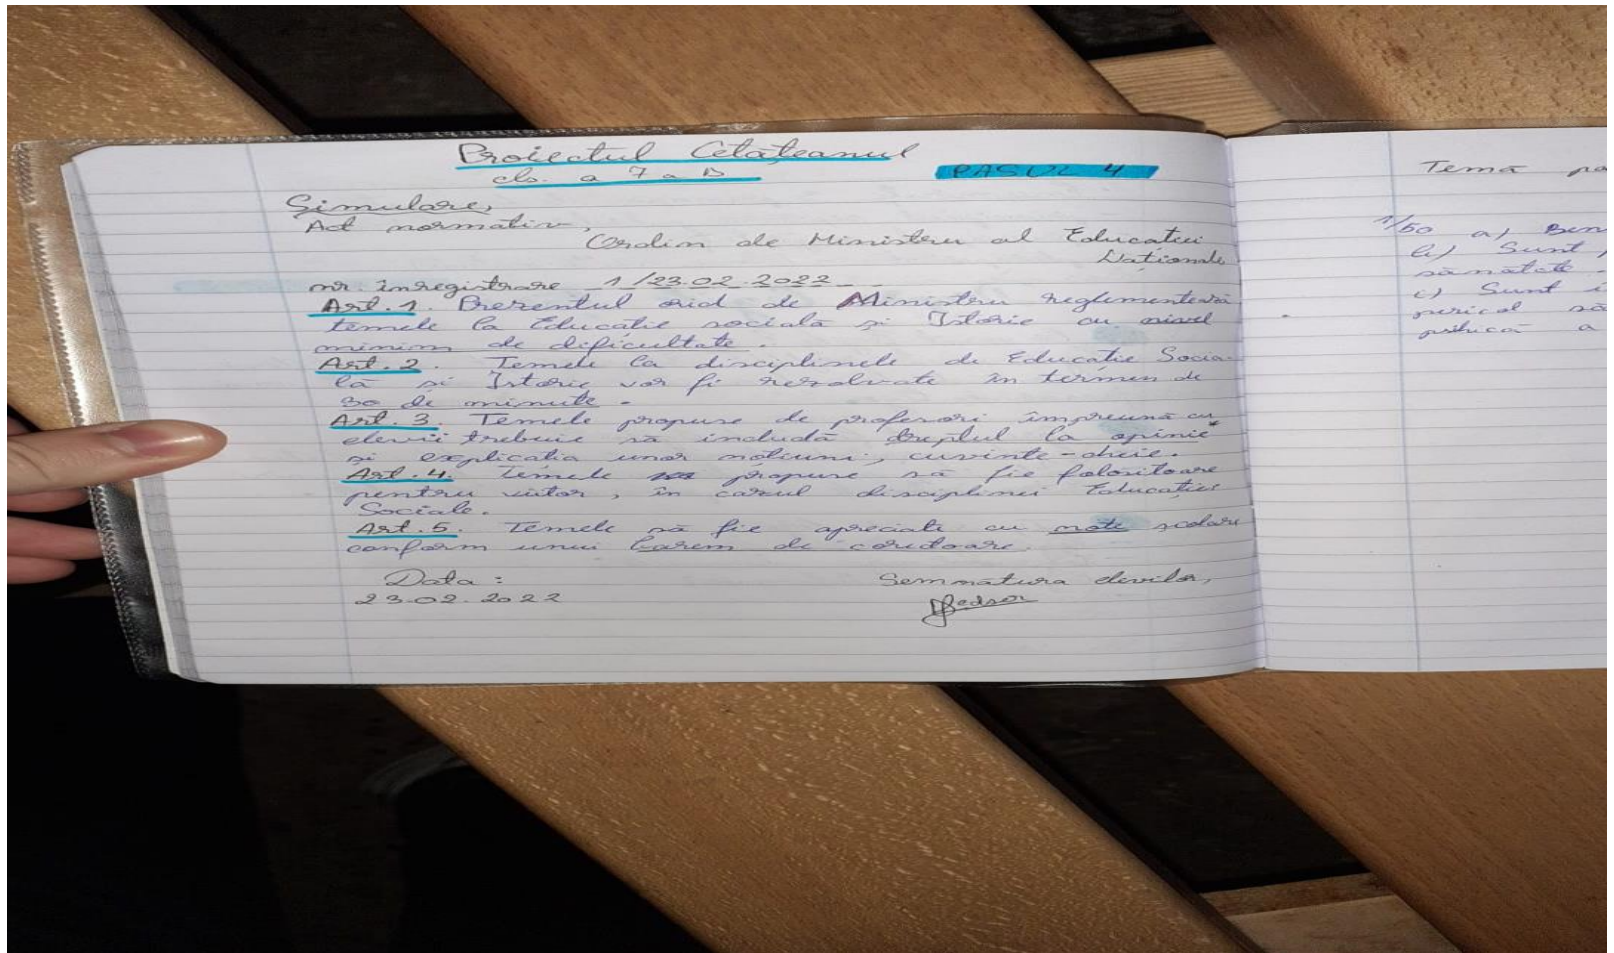 Proiectul Cetățeanul
cls. a 7 a B
PASUL 4
Simulare,
Act normativ,
Ordin de Ministru al Educației
Naționale
nr. înregistrare 1/23.02.2022
Art.1. Prezentul ord de Ministru reglementează
temele la Educație socială și Istorie cu nivel
minim de dificultate.
Art.2. Temele la disciplinele de Educație Socia-
lă și Istorie vor fi rezolvate în termen de
30 de minute.
Art.3. Temele propuse de profesori împreună cu
elevii trebuie să includă dreptul la opinie*
și explicația unor noțiuni, cuvinte-cheie.
Art.4. Temele propuse să fie folositoare
pentru viitor, în cazul disciplinei Educației
Sociale.
Art.5. Temele să fie apreciate cu note școlare
conform unui barem de corectoare.
Data:
23.02.2022
Semnătura elevilor,
Temă
1/50 a)
b) Sunt
sănătate.
c) Sunt
pericol
publică a